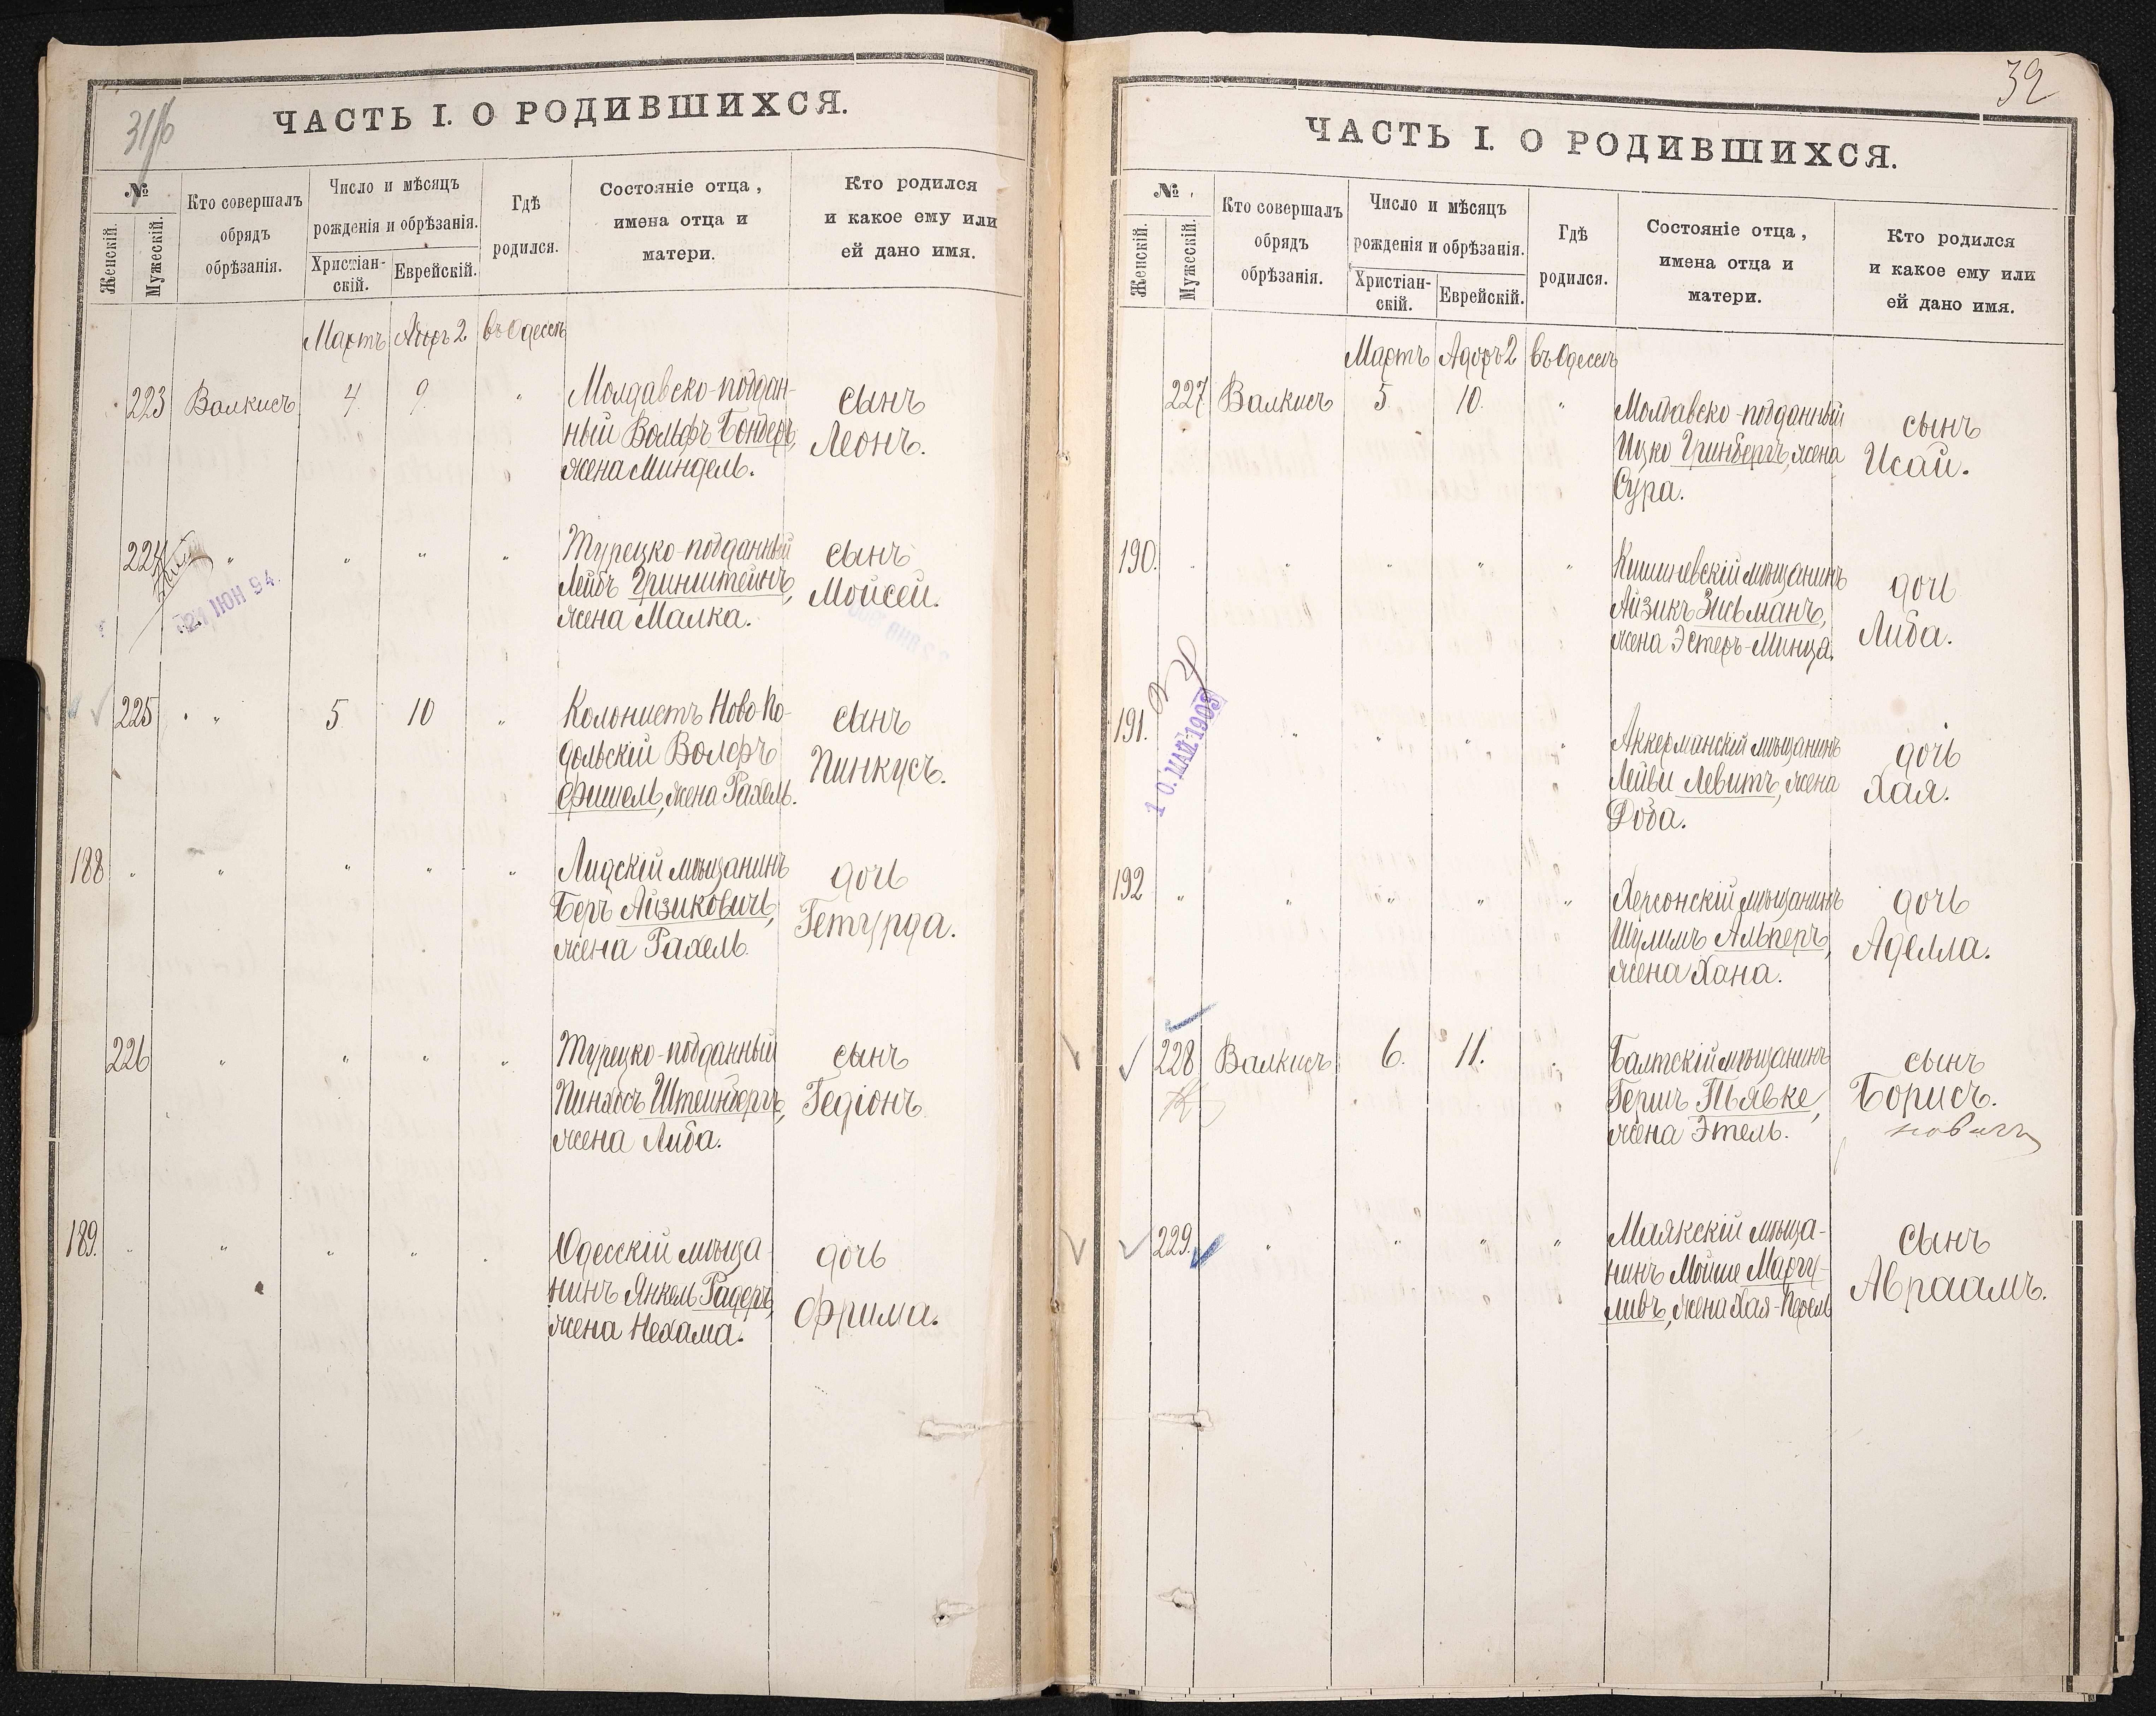 31/б
ЧАСТЬ I. О РОДИВШИХСЯ.
№
Женскій.
Мужескій.
Кто совершалъ
обрядъ
обрѣзанія.
Число и мѣсяцъ
рожденія и обрѣзанія.
Христіан-
скій.
Еврейскій.
Гдѣ
родился.
Состояніе отца,
имена отца и
матери.
Кто родился
и какое ему или
ей дано имя.
Мартъ Адаръ 2 въ Одессѣ
223 Валкисъ 4 9. " Молдавско-поддан-
ный Вольфъ Бондеръ,
жена Миндель.
сынъ
Леонъ.
224 " " " " Турецко-подданный
Лейбъ Гринштейнъ,
жена Малка.
сынъ
Мойсей.
21 ІЮН 94.
225 " 5 10 " Колонистъ Ново-По-
дольскій Волфъ
Фишель, жена Рахель.
сынъ
Пинкусъ.
188 " " " " " Лидскій мѣщанинъ
Беръ Айзиковичъ,
жена Рахель.
дочь
Гетруда.
226 " " " " Турецко-подданный
Пинхосъ Штейнбергъ,
жена Либа.
сынъ
Гедіонъ
189. " " " " " Одесскій мѣща-
нинъ Янкель Радеръ,
жена Нехама.
дочь
Фрима.
32
ЧАСТЬ I. О РОДИВШИХСЯ.
№
Женскій.
Мужескій.
Кто совершалъ
обрядъ
обрѣзанія.
Число и мѣсяцъ
рожденія и обрѣзанія.
Христіан-
скій.
Еврейскій.
Гдѣ
родился.
Состояніе отца,
имена отца и
матери.
Кто родился
и какое ему или
ей дано имя.
Мартъ Адаръ 2 въ Одессѣ
227 Валкисъ 5 10. " Молдавско-подданный
Ицко Гринбергъ, жена
Сура.
сынъ
Исай.
190. " " " " " Кишиневскій мѣщанинъ
Айзикъ Зисьманъ,
жена Эстеръ-Минца.
дочь
Либа.
191. " " " " Аккерманскій мѣщанинъ
Лейви Левитъ, жена
Роза.
дочь
Хая.
10. МАЙ 1905
192 " " " " " Херсонскій мѣщанинъ
Шулимъ Альперъ,
жена Хана.
дочь
Аделла.
228 Валкисъ 6. 11. " Балтскій мѣщанинъ
Гершъ Пьявке,
жена Этель.
сынъ
Борисъ.
229. " " " " Маякскій мѣща-
нинъ Мойше Маргу-
ливъ, жена Хая-Перель
сынъ
Авраамъ.